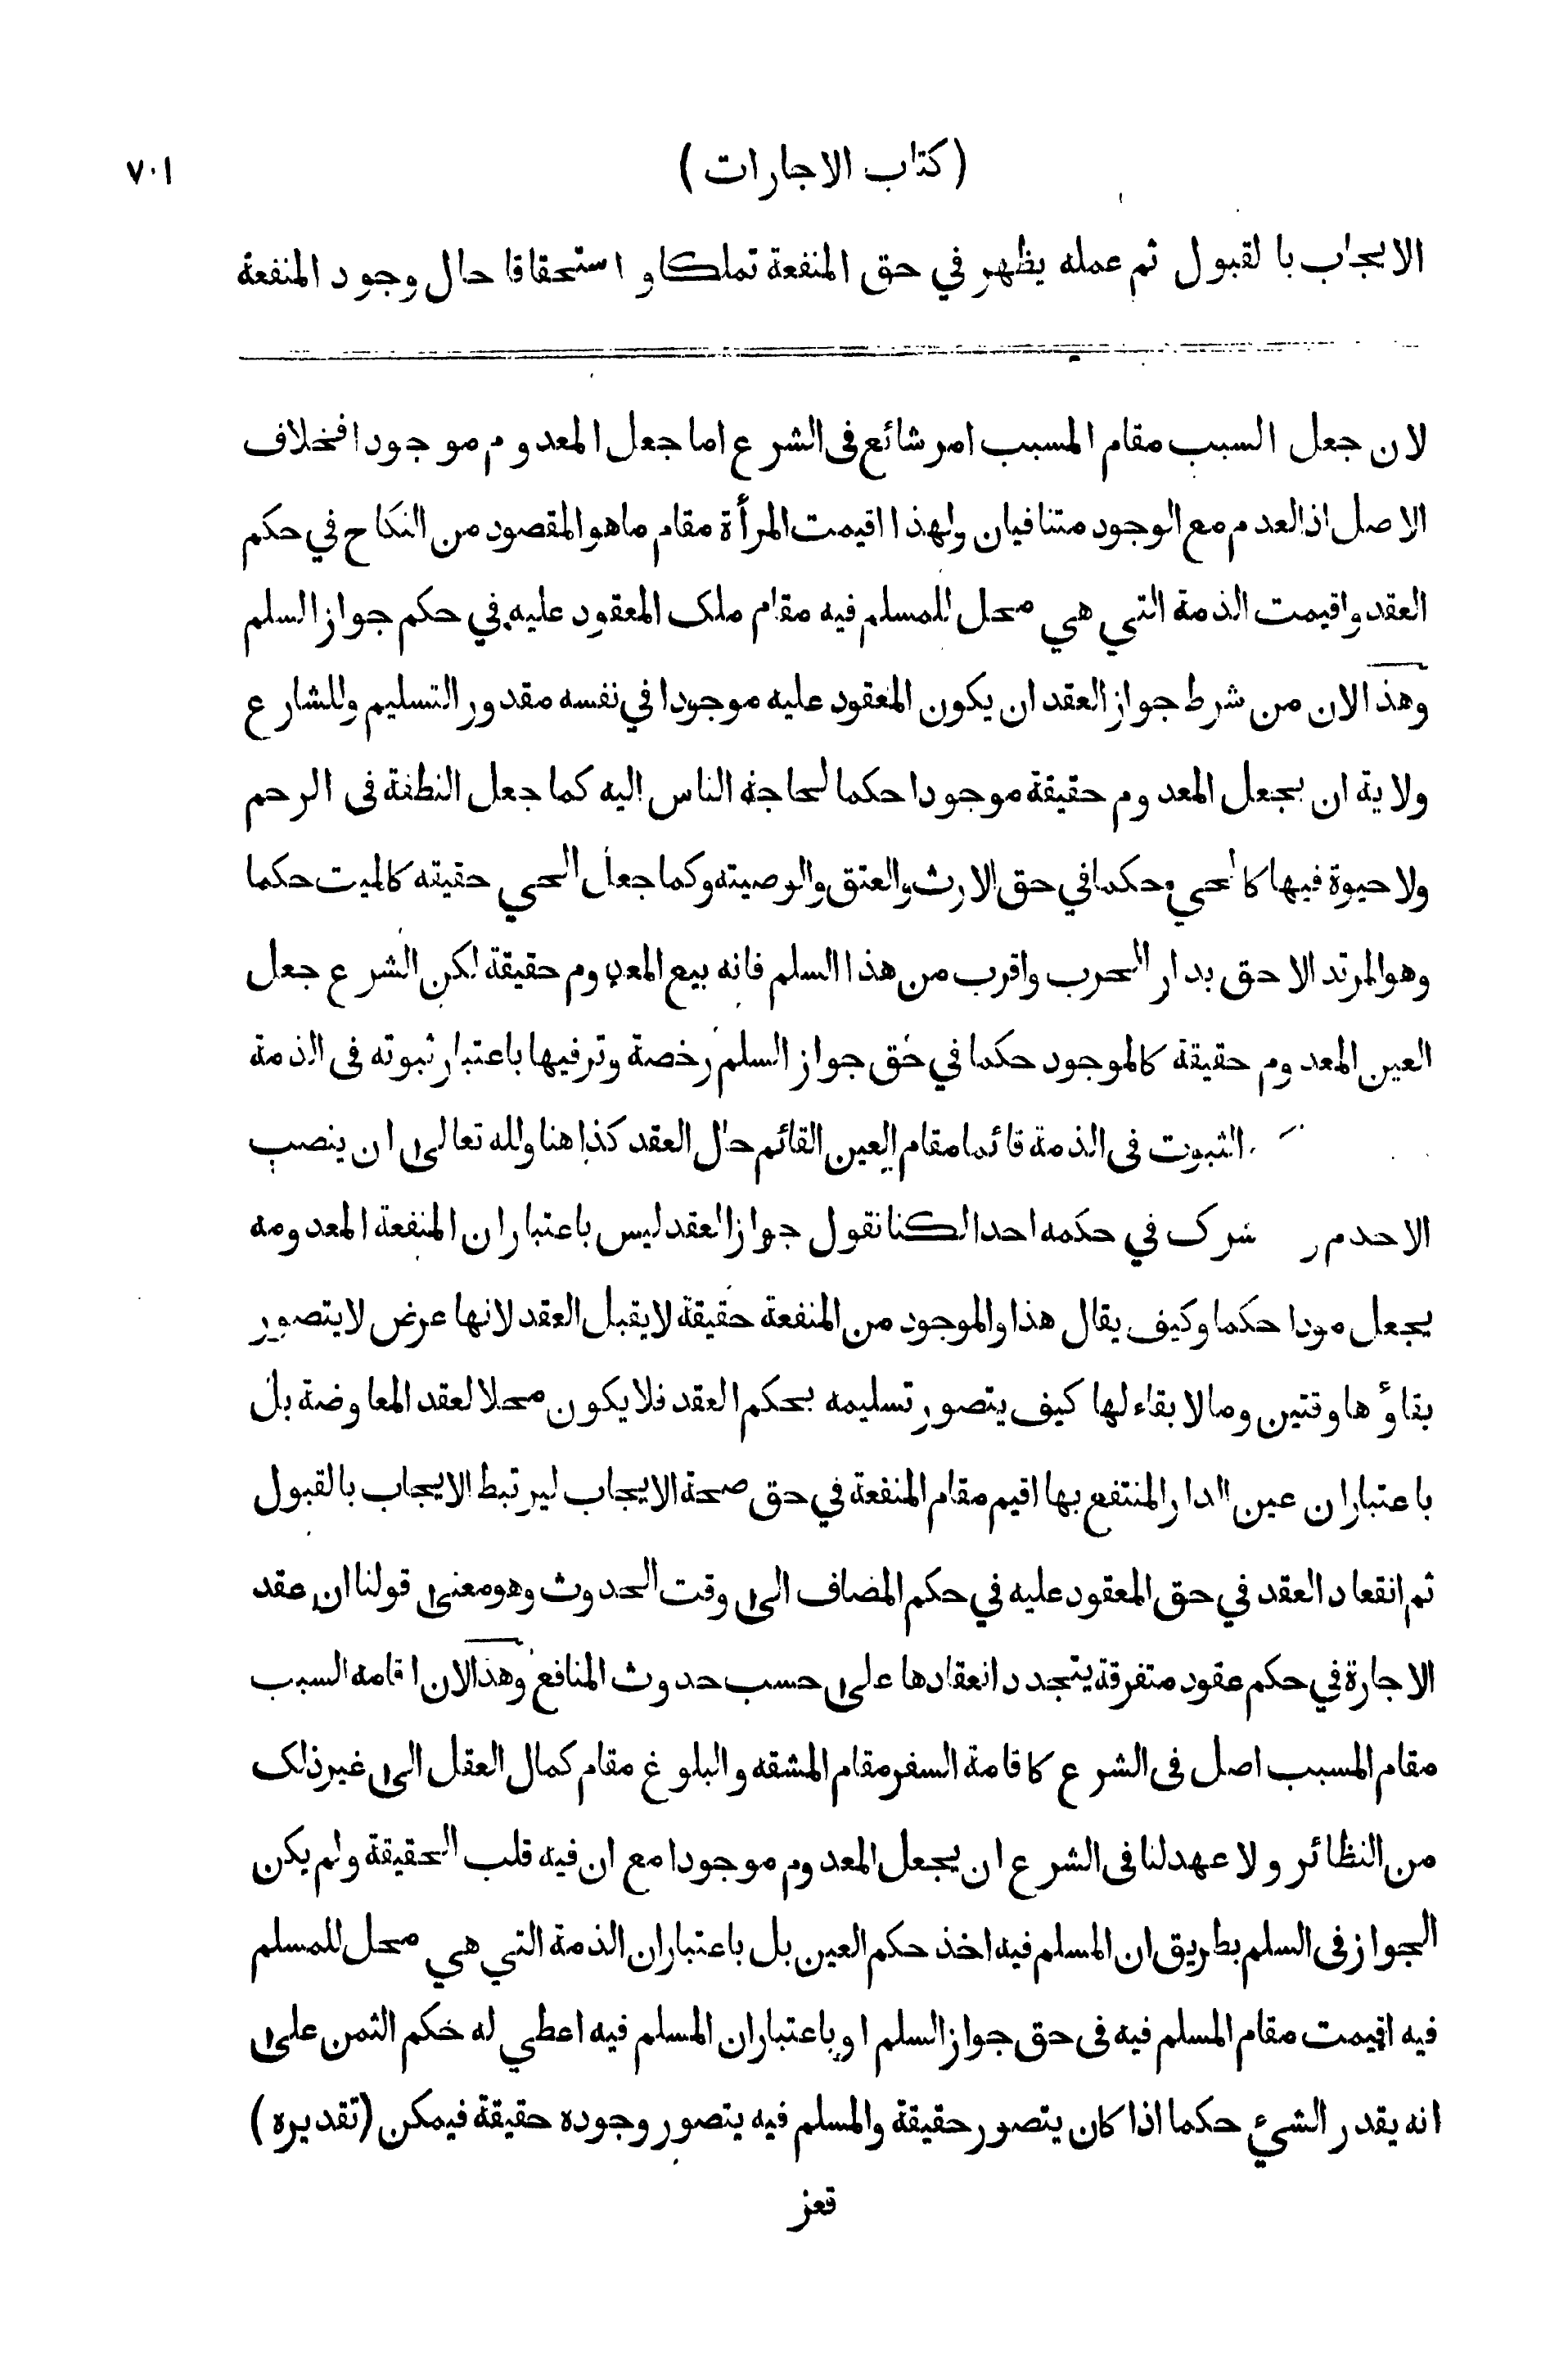 (كتاب الاجارات)
٧٠١
الايجاب بالقبول ثم عمله يظهر في حق المنفعة تملكا و استحقاقا حال وجود المنفعة
لان جعل السبب مقام المسبب امر شائع فى الشرع اما جعل المعدوم موجودا فخلاف
الاصل اذ العدم مع الوجود متنافيان ولهذا اقيمت المرأة مقام ماهو المقصود من النكاح في حكم
العقد واقيمت الذمة التي هي محل للمسلم فيه مقام ملك المعقود عليه في حكم جواز السلم
وهذا لان من شرط جواز العقد ان يكون المعقود عليه موجودا في نفسه مقدور التسليم وللشارع
ولاية ان يجعل المعدوم حقيقة موجودا حكما لحاجة الناس اليه كما جعل النطفة فى الرحم
ولا حيوة فيها كالحي حكما في حق الارث والعتق والوصيته وكما جعل الحي حقيقه كالميت حكما
وهو المرتد الاحق بدار الحرب واقرب من هذا السلم فانه بيع المعدوم حقيقة لكن الشرع جعل
العين المعدوم حقيقة كالموجود حكما في حق جواز السلم رخصة وترفيها باعتبار ثبوته فى الذمة
الثبوت فى الذمة قائما مقام العين القائم حال العقد كذا هنا ولله تعالى ان ينصب
الا حد شرك في حكمه احدا لكنا نقول جواز العقد ليس باعتبار ان المنفعة المعدومه
يجعل مودا حكما وكيف يقال هذا والموجود من المنفعة حقيقة لا يقبل العقد لانها عرض لا يتصور
بقاؤها وقتين ومالا بقاء لها كيف يتصور تسليمه بحكم العقد فلا يكون محلا لعقد المعاوضة بل
باعتبار ان عين الدار المنتفع بها اقيم مقام المنفعة في حق صحة الايجاب ليرتبط الايجاب بالقبول
ثم انقعاد العقد في حق المعقود عليه في حكم المضاف الى وقت الحدوث وهو معنى قولنا ان عقد
الاجارة في حكم عقود متفرقة يتجدد انعقادها على حسب حدوث المنافع وهذا لان اقامه السبب
مقام المسبب اصل فى الشرع كاقامة السفر مقام المشقه والبلوغ مقام كمال العقل الى غير ذلك
من النظائر و لا عهد لنا فى الشرع ان يجعل المعدوم موجودا مع ان فيه قلب الحقيقة ولم يكن
الجواز فى السلم بطريق ان المسلم فيه اخذ حكم العين بل باعتبار ان الذمة التي هي محل للمسلم
فيه اقيمت مقام المسلم فيه فى حق جواز السلم او باعتبار ان المسلم فيه اعطي له حكم الثمن على
انه يقدر الشيء حكما اذا كان يتصور حقيقة والمسلم فيه يتصور وجوده حقيقة فيمكن (تقديره)
قعز